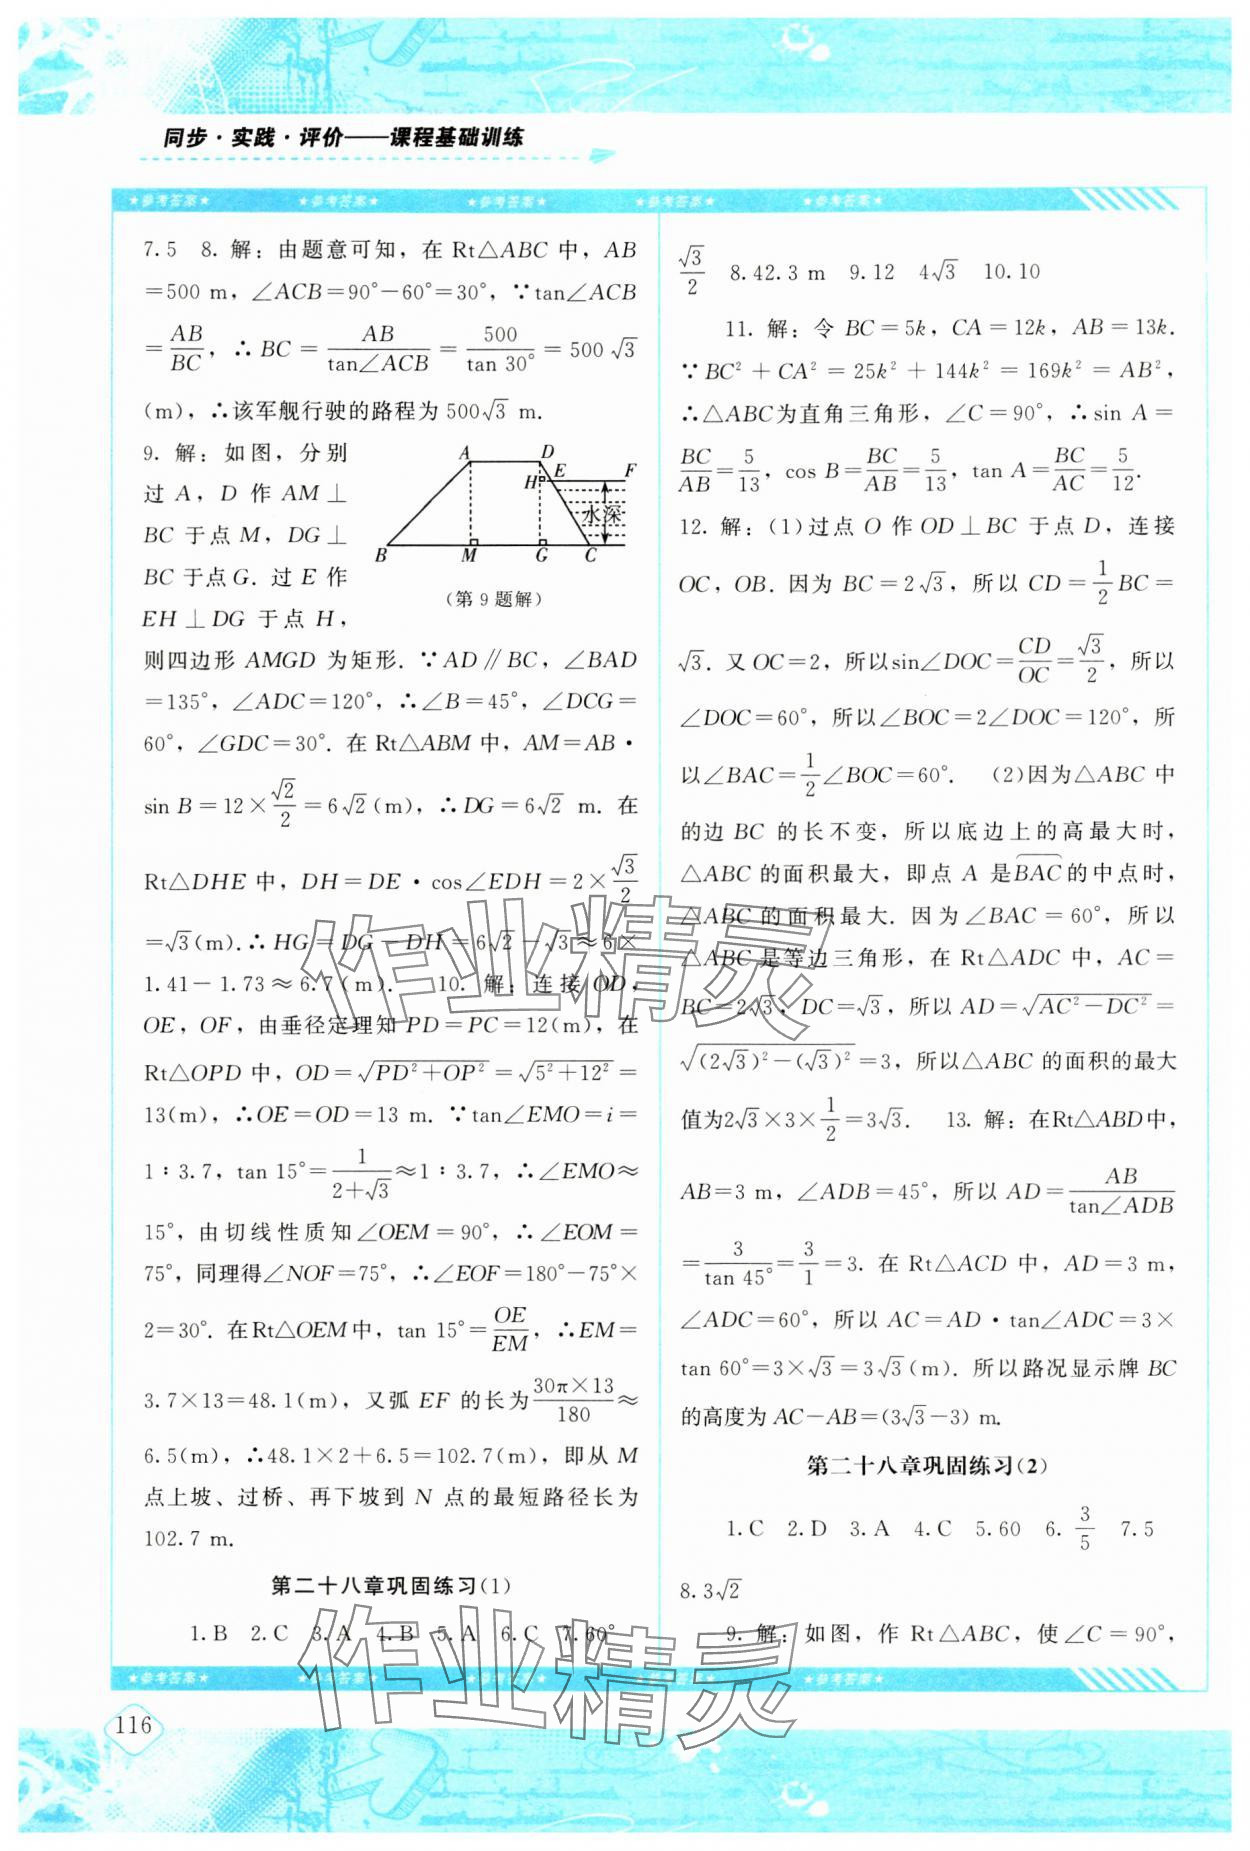 同步·实践·评价——课程基础训练
★参考答案★ ★参考答案★ ★参考答案★ ★参考答案★ ★参考答案★
7.5 8. 解：由题意可知，在 Rt△ABC 中，AB
=500 m，∠ACB=90°-60°=30°，∵tan∠ACB
=AB/BC，∴BC=AB/tan∠ACB=500/tan 30°=500√3
(m)，∴该军舰行驶的路程为500√3 m.
9. 解：如图，分别
过 A，D 作 AM⊥
BC 于点 M，DG⊥
BC 于点 G. 过 E 作
EH⊥DG 于点 H，
A D E F H 水深 B M G C
(第 9 题解)
则四边形 AMGD 为矩形. ∵AD∥BC，∠BAD
=135°，∠ADC=120°，∴∠B=45°，∠DCG=
60°，∠GDC=30°. 在 Rt△ABM 中，AM=AB·
sin B=12×√2/2=6√2(m)，∴DG=6√2 m. 在
Rt△DHE 中，DH=DE·cos∠EDH=2×√3/2
=√3(m). ∴HG=DG-DH=6√2-√3≈6×
1.41-1.73≈6.7(m). 10. 解：连接 OD，
OE，OF，由垂径定理知 PD=PC=12(m)，在
Rt△OPD 中，OD=√(PD²+OP²)=√(5²+12²)=
13(m)，∴OE=OD=13 m. ∵tan∠EMO=i=
1∶3.7，tan 15°=1/(2+√3)≈1∶3.7，∴∠EMO≈
15°，由切线性质知∠OEM=90°，∴∠EOM=
75°，同理得∠NOF=75°，∴∠EOF=180°-75°×
2=30°. 在Rt△OEM中，tan 15°=OE/EM，∴EM=
3.7×13=48.1(m)，又弧 EF 的长为30π×13/180≈
6.5(m)，∴48.1×2+6.5=102.7(m)，即从 M
点上坡、过桥、再下坡到 N 点的最短路径长为
102.7 m.
第二十八章巩固练习(1)
1.B 2.C 3.A 4.B 5.A 6.C 7.60°
√3/2 8.42.3 m 9.12 4√3 10.10
11. 解：令 BC=5k，CA=12k，AB=13k.
∵BC²+CA²=25k²+144k²=169k²=AB²，
∴△ABC为直角三角形，∠C=90°，∴sin A=
BC/AB=5/13，cos B=BC/AB=5/13，tan A=BC/AC=5/12.
12. 解：(1)过点 O 作 OD⊥BC 于点 D，连接
OC，OB. 因为 BC=2√3，所以 CD=1/2BC=
√3. 又OC=2，所以sin∠DOC=CD/OC=√3/2，所以
∠DOC=60°，所以∠BOC=2∠DOC=120°，所
以∠BAC=1/2∠BOC=60°. (2)因为△ABC 中
的边 BC 的长不变，所以底边上的高最大时，
△ABC 的面积最大，即点 A 是BAC的中点时，
△ABC 的面积最大. 因为∠BAC=60°，所以
△ABC 是等边三角形，在 Rt△ADC 中，AC=
BC=2√3，DC=√3，所以 AD=√(AC²-DC²)=
√((2√3)²-(√3)²)=3，所以△ABC 的面积的最大
值为2√3×3×1/2=3√3. 13. 解：在Rt△ABD中，
AB=3 m，∠ADB=45°，所以 AD=AB/tan∠ADB
=3/tan 45°=3/1=3. 在 Rt△ACD 中，AD=3 m，
∠ADC=60°，所以 AC=AD·tan∠ADC=3×
tan 60°=3×√3=3√3(m). 所以路况显示牌 BC
的高度为 AC-AB=(3√3-3) m.
第二十八章巩固练习(2)
1.C 2.D 3.A 4.C 5.60 6.3/5 7.5
8.3√2
9. 解：如图，作 Rt△ABC，使∠C=90°，
★参考答案★ ★参考答案★ ★参考答案★ ★参考答案★ ★参考答案★
116
作业精灵
作业精灵